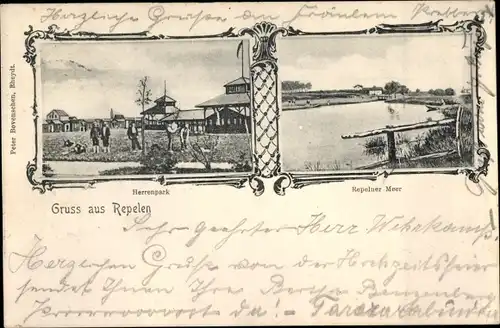 Herzliche Grüsse an Fräulein
Peter Bevenschen, Rheydt.
Herrenpark
Repelner Meer
Gruss aus Repelen
Sehr geehrter Herr Wehrkamp!
Herzlichen Gruß von der Hochzeitsfeier
sendet Ihnen Ihre Bertha
da!